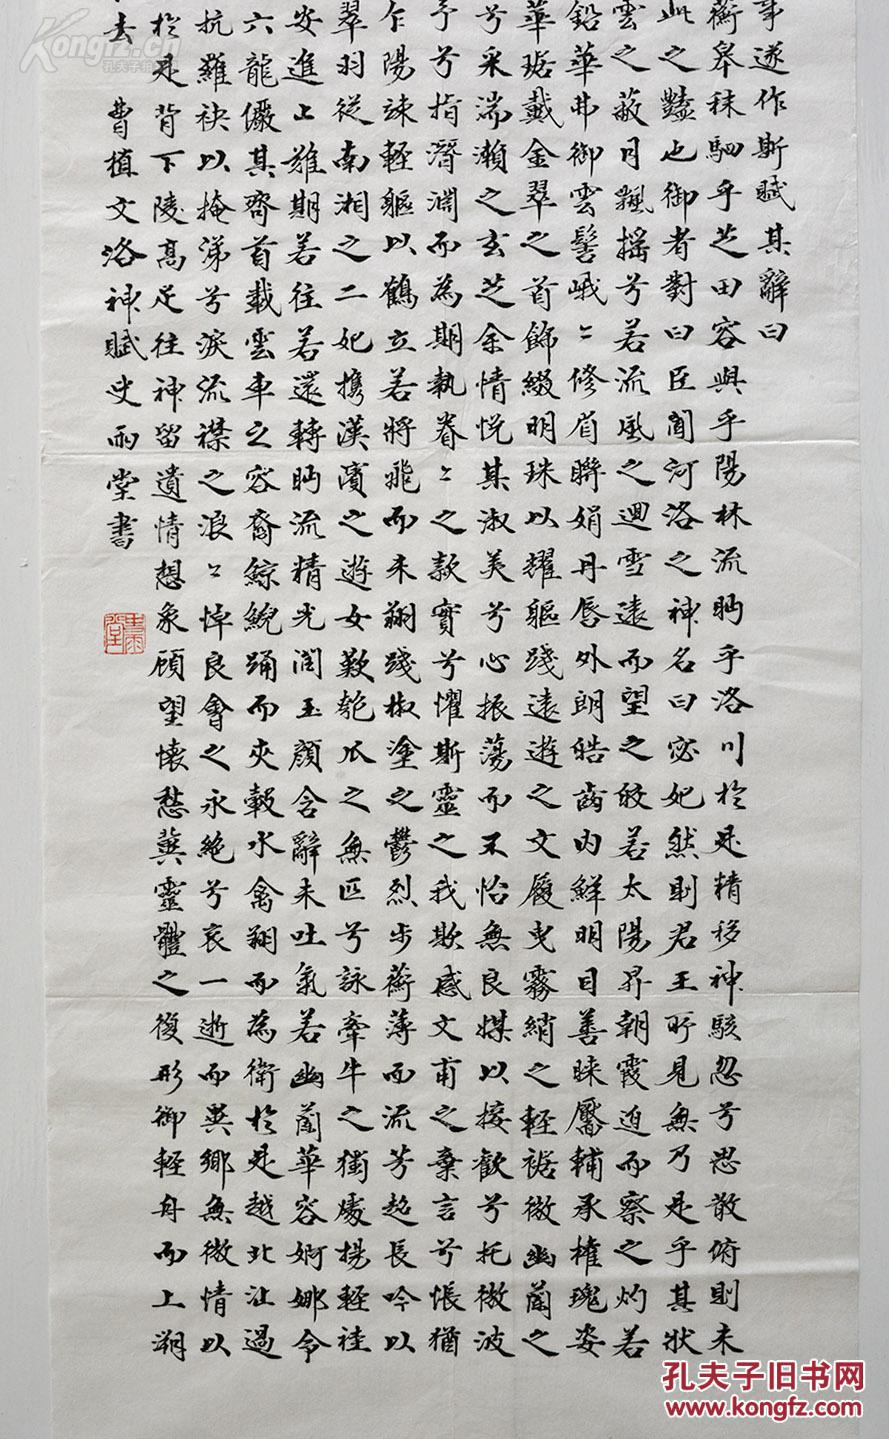 事遂作斯賦其辭曰
蘅皋秣駟乎芝田容與乎陽林流眄乎洛川於是精移神駭忽兮思散俯則未
此之豔也御者對曰臣聞河洛之神名曰宓妃然則君王所見無乃是乎其狀
雲之蔽月飄搖兮若流風之迴雪遠而望之皎若太陽昇朝霞迫而察之灼若
鉛華弗御雲髻峨〻修眉聯娟丹唇外朗皓齒內鮮明目善睞靨輔承權瑰姿
華琚戴金翠之首飾綴明珠以耀軀踐遠遊之文履曳霧綃之輕裾微幽蘭之
兮采湍瀨之玄芝余情悅其淑美兮心振蕩而不怡無良媒以接歡兮托微波
予兮指潛淵而為期執眷〻之款實兮懼斯靈之我欺感交甫之棄言兮悵猶
乍陽竦輕軀以鶴立若將飛而未翔踐椒塗之鬱烈步蘅薄而流芳超長吟以
翠羽從南湘之二妃攜漢濱之遊女歎匏瓜之無匹兮詠牽牛之獨處揚輕袿
安進止難期若往若還轉眄流精光潤玉顏含辭未吐氣若幽蘭華容婀娜令
六龍儼其齊首載雲車之容裔鯨鯢踴而夾轂水禽翔而為衛於是越北沚過
抗羅袂以掩涕兮淚流襟之浪〻悼良會之永絕兮哀一逝而異鄉無微情以
於是背下陵高足往神留遺情想象顧望懷愁冀靈體之復形御輕舟而上溯
去 曹植文洛神賦史雨堂書
史雨堂
Kongfz.com
孔夫子旧书网
孔夫子旧书网
www.kongfz.com